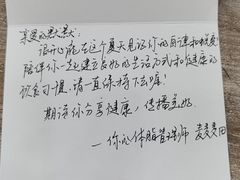 亲爱的默默:
很开心能在这个夏天见证你的自律和蜕变
陪伴你一起建立良好的生活方式和健康的
饮食习惯,请一直保持下去哦!
期待你分享健康,传播美好
—你的体脂管理师 麦麦田